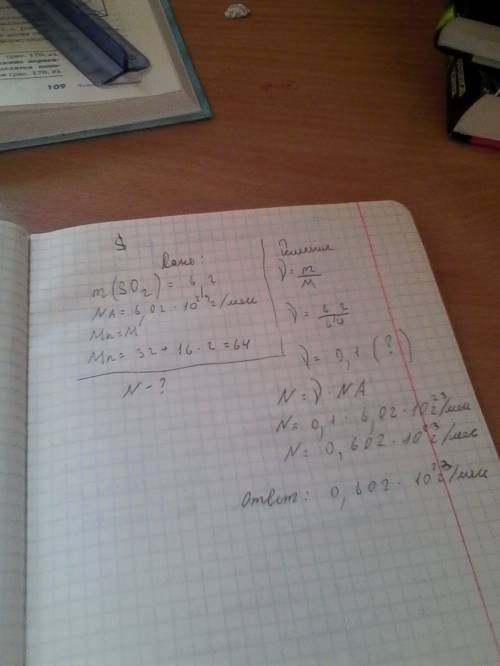 109
S
Дано:
m(SO₂) = 6 г
NA = 6,02 · 10²³/моль
Mr = M
Mr = 32 + 16 · 2 = 64
N - ?
Решение
ν = m/M
ν = 6 г/64
ν = 0,1 (?)
N = ν · NA
N = 0,1 · 6,02 · 10²³/моль
N = 0,602 · 10²³/моль
Ответ: 0,602 · 10²³/моль